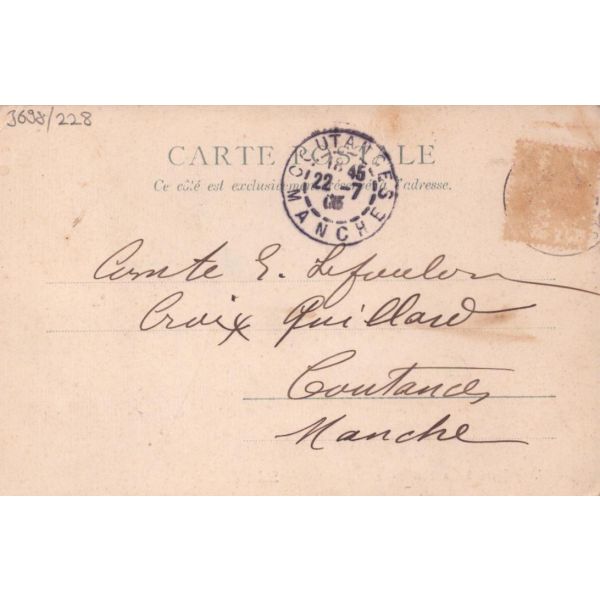 3698/228
CARTE POSTALE
Ce côté est exclusivement réservé à l'adresse.
COUTANCES
18 45
22 - 7
05
MANCHE
Comte E. Lefoulon
Croix Quillard
Coutances
Manche